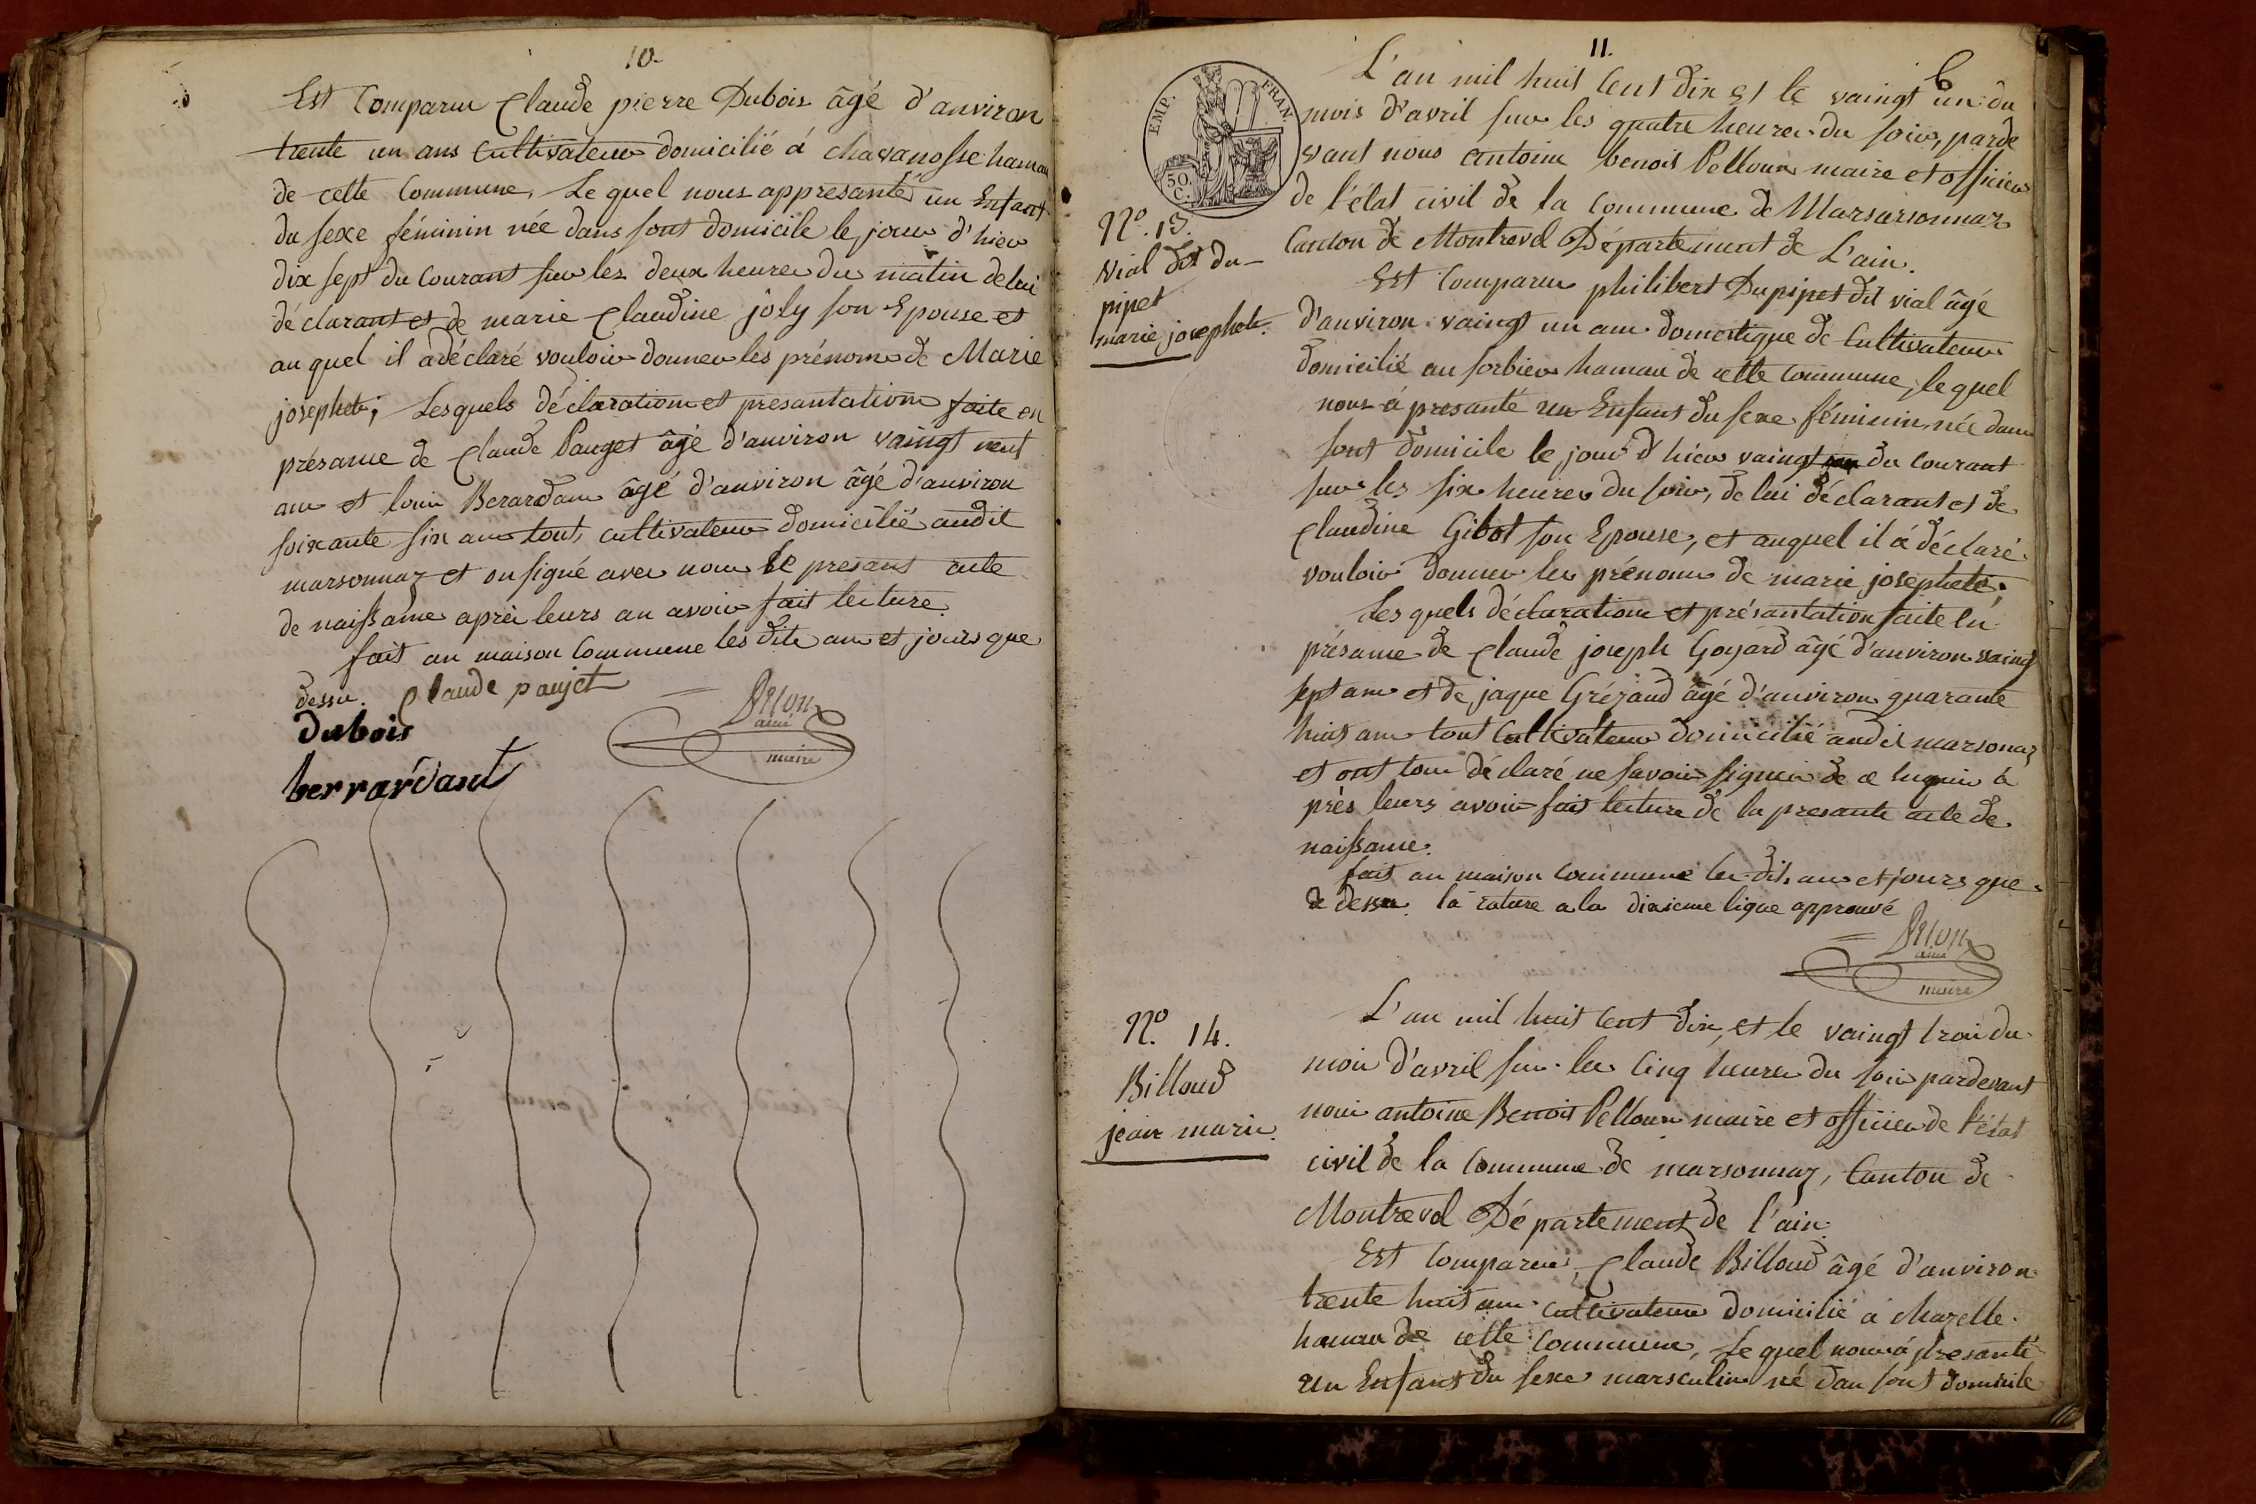 10.
Est Comparu Claude pierre Dubois âgé d'anviron
trente un ans Cultivateur domicilié á chavanosse hamau
de cette Commune, Le quel nous appresanté un Enfant
du sexe féminin née dans sont domicile le jour d'hier
dix sept du Courant sur les deux heures du matin de lui
déclarant et de marie Claudine joly son Epouse et
au quel il a déclaré vouloir donner les prénoms de Marie
josephete; Lesquels déclaration et presantation faite en
présance de Claude Pauget âgé d'anviron vaingt neuf
ans et louis Berardam âgé d'anviron âgé d'anviron
soixante six ans tout, cultivateur domicilié audit
marsonnaz et on signé avec nous le presant acte
de naissance après leurs an avoir fait lecture.
fait an maison Commune les dits an et jours que
dessu. Claude paujet
dubois
berrardant
ainé
maire
11.
6
EMP. FRAN.
50 C.
L'an mil huit Cent dix et le vaingt un du
mois d'avril sur les quatre heures du soir, parde
vant nous antoine benoit Pelloux maire et officier
de l'état civil de la Commune de Marsarsonnaz
Canton de Montrevel Département de L'ain.
N.o 13.
Vial dit du-
pipet
marie josephete.
Est Comparu philibert Dupipet dit vial âgé
d'anviron vaingt un ans domestique de Cultivateur
domicilié au sorbier hamau de cette Commune, le quel
nous á presanté un Enfant du sexe féminin, née dans
sont domicile le jour d'hier vaingt du Courant
sur les six heures du soir, de lui déclarant et de
Claudine Gibot son Epouse, et auquel il á déclaré
vouloir donner les prénoms de marie josephete;
Les quels déclaration et présantation faite en
présance de Claude joseph Goyard âgé d'anviron vaingt
sept ans et de jaque Grézaud âgé d'anviron quarante
huit ans tout Cultivateur domicilié audit marsonaz
et ont tous déclaré ne savoir signer de ce enquis á
près leurs avoir fait lecture de la presante acte de
naissance.
fait an maison Commune les dits, ans et jours que
de dessu. la rature a la dixieme ligne approuvé
ainé
maire
N.o 14.
Billoud
jean marie.
L'an mil huit Cent dix, et le vaingt trois du
mois d'avril sur les Cinq heures du soir pardevant
nous antoine Benoit Pelloux maire et officier de l'état
civil de la Commune de marsonnaz, Canton de
Montrevel Département de l'ain.
Est Comparus, Claude Billoud âgé d'anviron
trente huit ans cultivateur domicilié á Mazelle
hamau de cette Commune, Le quel nous á presanté
un Enfant du sexe marsculin né dans sont domicile